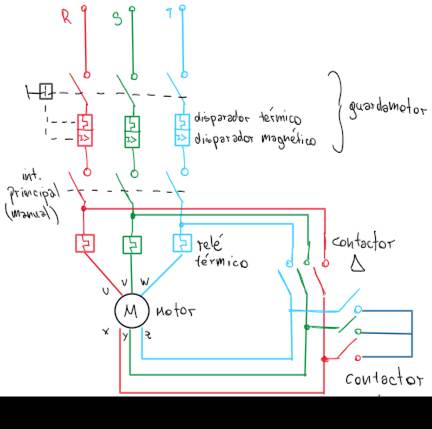 R S T
disparador térmico
disparador magnético
guardamotor
int.
principal
(manual)
relé
térmico
contactor
Δ
U V W
M
Motor
X Y Z
contactor